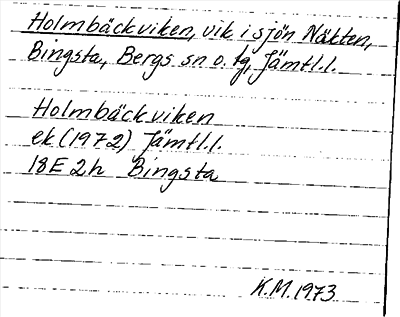 Holmbäckviken, vik i sjön Näkten,
Bingsta, Bergs sn o. tg, Jämtl.l.
Holmbäckviken
ek (1972) Jämtl.l.
18E 2h Bingsta
K.M. 1973